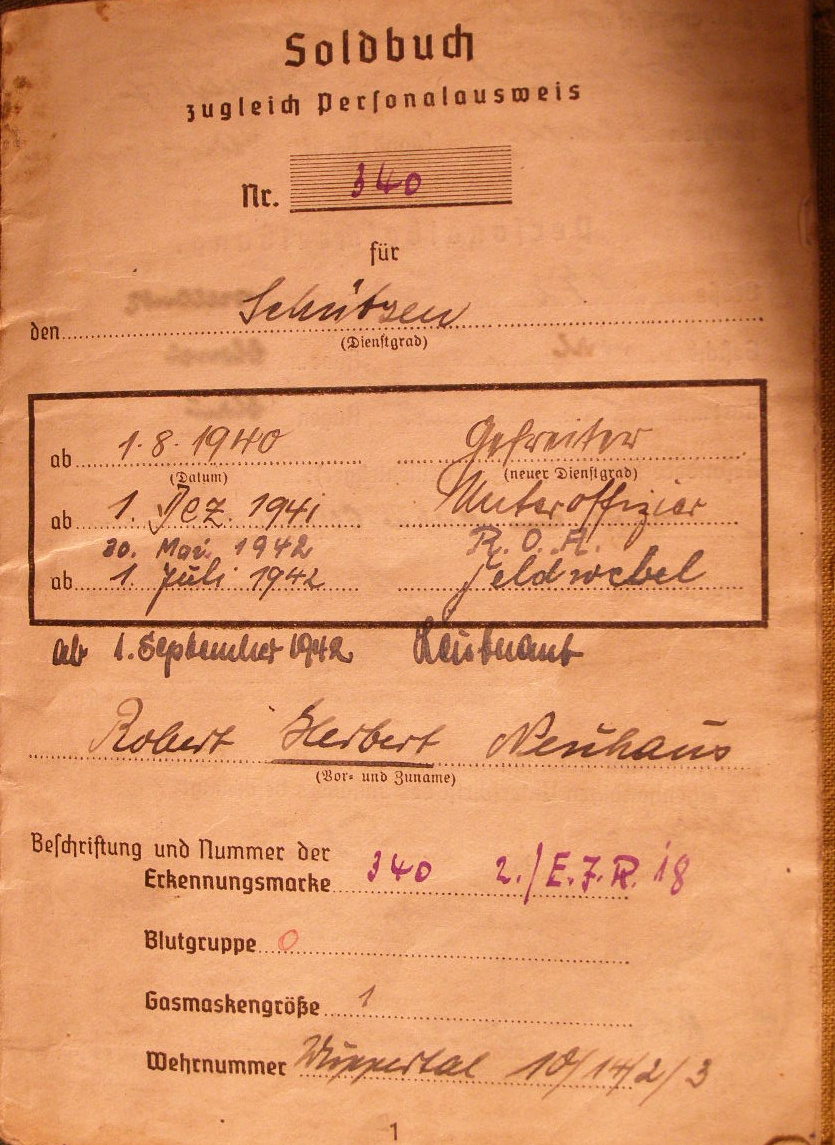 Soldbuch
zugleich Personalausweis
Nr. 340
für
den Schützen
(Dienstgrad)
ab 1.8.1940 Gefreiter
(Datum) (neuer Dienstgrad)
ab 1. Dez. 1941 Unteroffizier
20. Mai 1942 R.O.A.
ab 1. Juli 1942 Feldwebel
ab 1. September 1942 Leutnant
Robert Herbert Neuhaus
(Vor- und Zuname)
Beschriftung und Nummer der
Erkennungsmarke 340 2./E.J.R. 18
Blutgruppe O
Gasmaskengröße 1
Wehrnummer Wuppertal 10/14/2/3
1